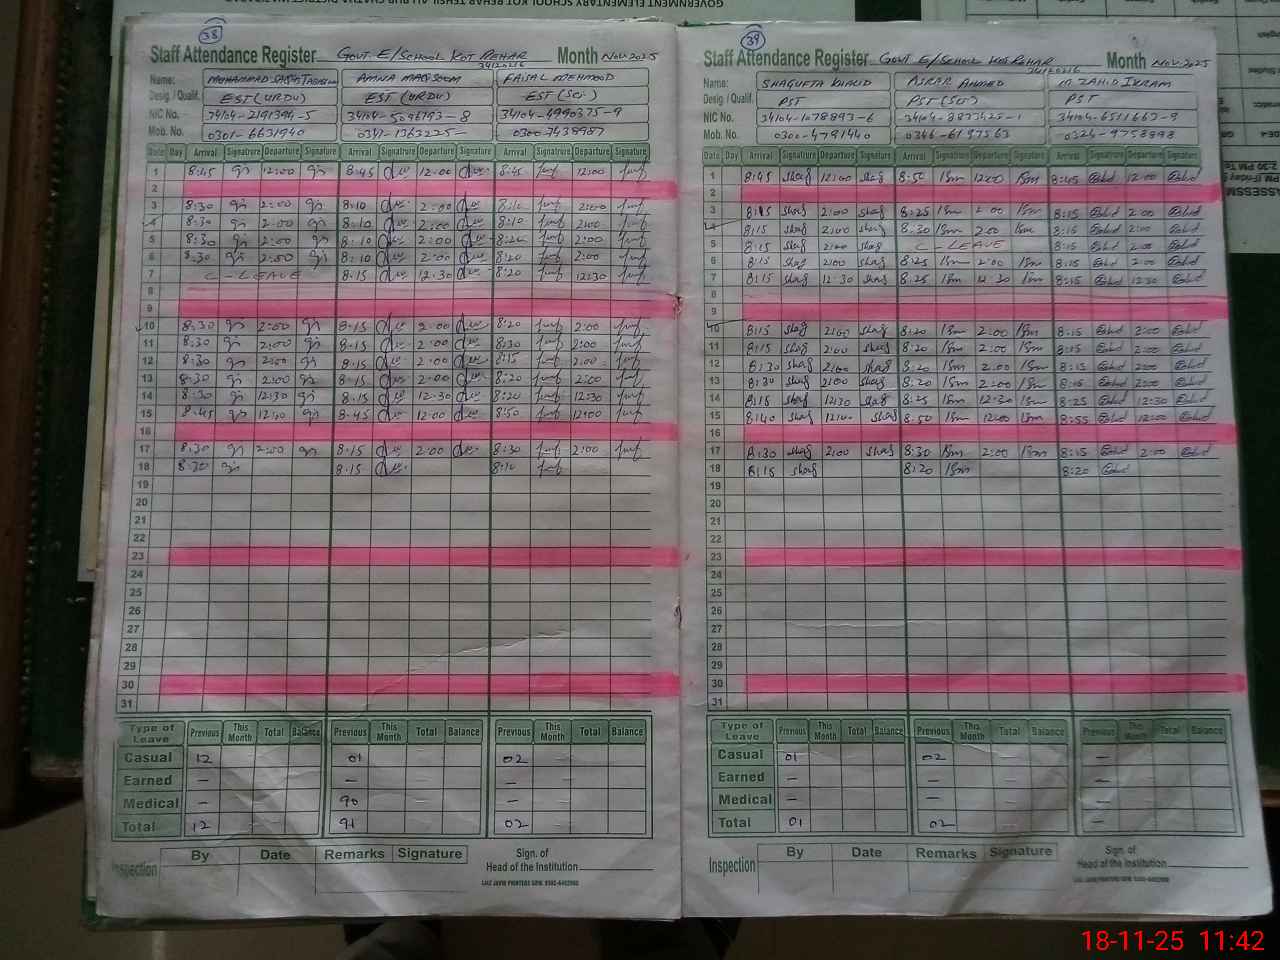 GOVERNMENT ELEMENTARY SCHOOL KOT BEHAR TEHSIL
38
Staff Attendance Register GOVT E/SCHOOL KOT BEHAR Month Nov.2025
34120216
Name: AMNA MAQSOOM FAISAL MEHMOOD
Desig. / Qualif. EST (URDU) EST (URDU) EST (Sci.)
NIC No. 34104-4990375-9
Mob. No. 0301-6631940 0341-1363225 0300-7438987
Date Day Arrival Signature Departure Signature Arrival Signature Departure Signature Arrival Signature Departure Signature
1 8:45 12:00 8:45 12:00 8:45 12:00
2
3 8:30 2:00 8:10 2:00 8:10 2:00
4 8:30 2:00 8:10 2:00 8:10 2:00
5 8:30 2:00 8:10 2:00 8:20 2:00
6 8:30 2:00 8:10 2:00 8:20 2:00
7 C-LEAVE 8:15 12:30 8:20 12:30
8
9
10 8:30 2:00 8:15 2:00 8:20 2:00
11 8:30 2:00 8:15 2:00 8:30 2:00
12 8:30 2:00 8:15 2:00 8:15 2:00
13 8:30 2:00 8:15 2:00 8:20 2:00
14 8:30 12:30 8:15 12:30 8:20 12:30
15 8:45 12:40 8:45 12:00 8:50 12:00
16
17 8:30 2:00 8:15 2:00 8:30 2:00
18 8:30 8:15 8:10
19
20
21
22
23
24
25
26
27
28
29
30
31
Type of Leave Previous This Month Total Balance Previous This Month Total Balance Previous This Month Total Balance
Casual 12 01 02
Earned — — —
Medical — 90 —
Total 12 91 02
Inspection By Date Remarks Signature Sign. of Head of the Institution
39
Staff Attendance Register GOVT E/SCHOOL KOT BEHAR Month Nov.2025
34120216
Name: SHAGUFTA KHALID AHMAD M.ZAHID IKRAM
Desig. / Qualif. PST PST (Sci) PST
NIC No. 34104-1078893-6 34104-6511663-9
Mob. No. 0300-4791440 0346-6197563 0324-9758998
Date Day Arrival Signature Departure Signature Arrival Signature Departure Signature Arrival Signature Departure Signature
1 8:45 shag 12:00 shag 8:50 12:00 8:45 12:00
2
3 8:15 shag 2:00 shag 8:25 2:00 8:15 2:00
4 8:15 shag 2:00 shag 8:30 2:00 8:15 2:00
5 8:15 shag 2:00 shag C-LEAVE 8:15 2:00
6 8:15 shag 2:00 shag 8:25 2:00 8:15 2:00
7 8:15 shag 12:30 shag 8:25 12:30 8:15 12:30
8
9
10 8:15 shag 2:00 shag 8:20 2:00 8:15 2:00
11 8:15 shag 2:00 shag 8:20 2:00 8:15 2:00
12 8:30 shag 2:00 shag 8:20 2:00 8:15 2:00
13 8:30 shag 2:00 shag 8:20 2:00 8:15 2:00
14 8:15 shag 12:30 shag 8:25 12:30 8:25 12:30
15 8:40 shag 12:00 shag 8:50 12:00 8:55 12:00
16
17 8:30 shag 2:00 shag 8:30 2:00 8:15 2:00
18 8:15 shag 8:20 8:20
19
20
21
22
23
24
25
26
27
28
29
30
31
Type of Leave Previous This Month Total Balance Previous This Month Total Balance Previous This Month Total Balance
Casual 01 02 —
Earned — — —
Medical — — —
Total 01 02 —
Inspection By Date Remarks Signature Sign. of Head of the Institution
18-11-25 11:42